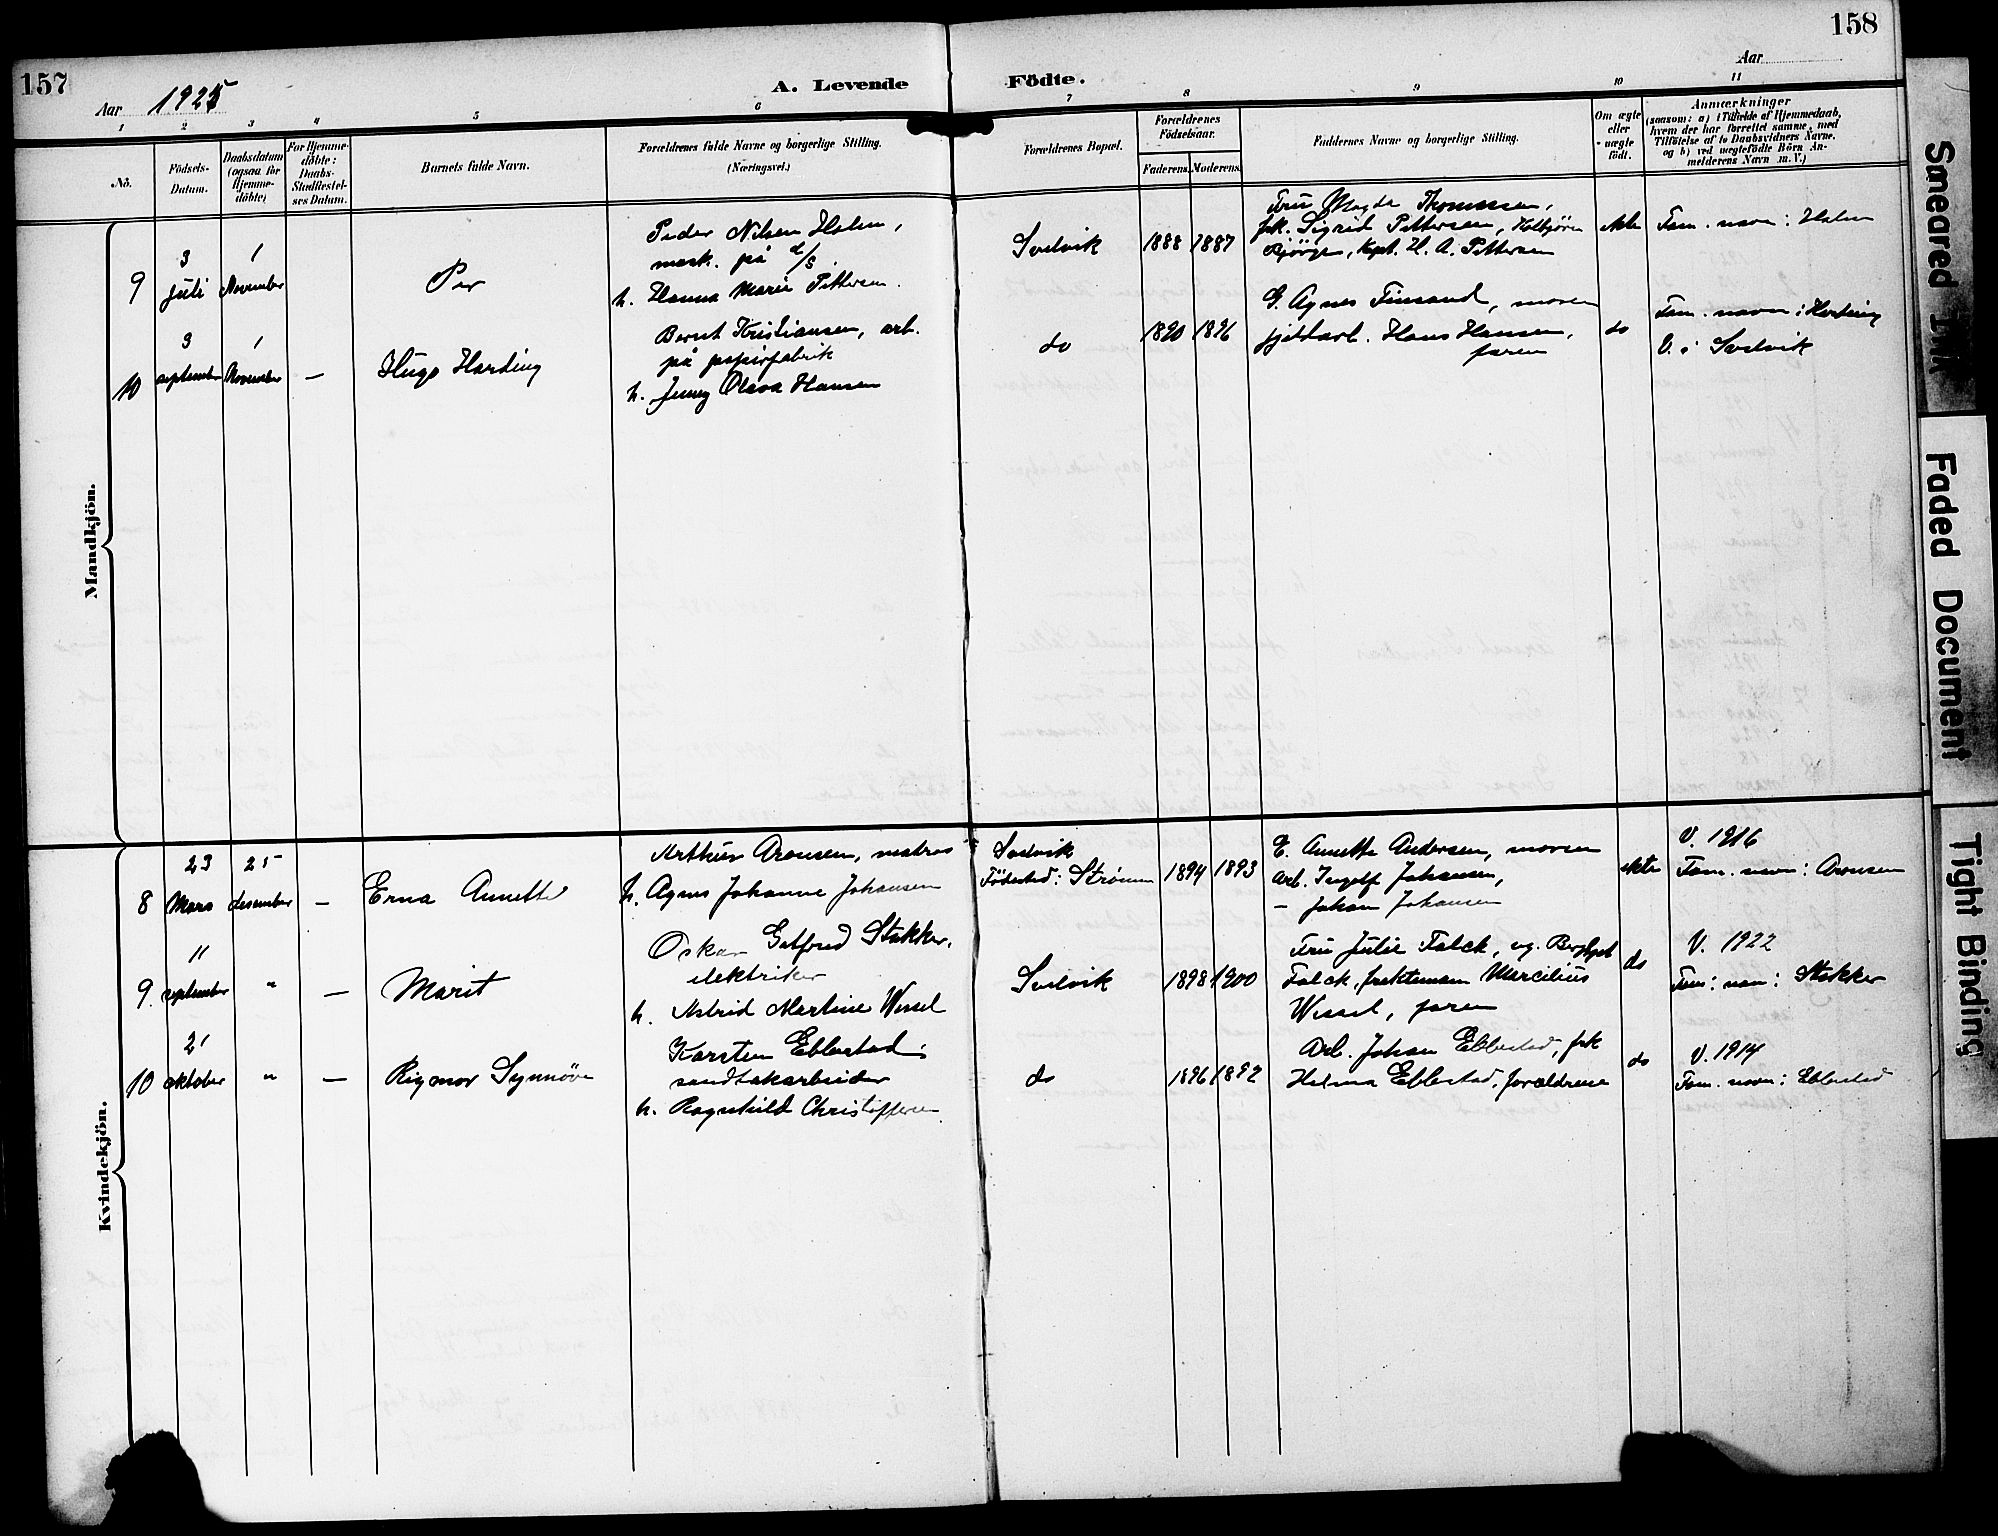 157
Aar 1925
A. Levende Födte.
Aar
158
1 2 3 4 5 6 7 8 9 10 11
No.
Födsels-
Datum.
Daabsdatum
(ogsaa for
Hjemme-
döbte)
For Hjemme-
döbte:
Daabs-
Stadfæstel-
ses Datum.
Barnets fulde Navn.
Forældrenes fulde Navne og borgerlige Stilling.
(Næringsvei.)
Forældrenes Bopæl.
Forældrenes
Födselsaar.
Faderens.
Moderens.
Faddernes Navne og borgerlige Stilling.
Om ægte
eller
uægte
födt.
Anmærkninger
(saasom: a) i Tilfælde af Hjemmedaab,
hvem der har forrettet samme, med
Tilföielse af to Daabsvidners Navne,
og b) ved uægtefödte Börn An-
melderens Navn m. V.)
Mandkjön.
9
3
juli
1
November
Per
Peder Nilsen Holm,
mask. på d/s
h. Hanna Marie Pettersen.
Svelvik
1888
1887
Fru Magda Thomassen,
frk. Sigrid Pettersen, Kolbjörn
Bjørge, kapt. H. A. Pettersen
ekte
Fam. navn: Holm
10
3
september
1
November
—
Hugo Harding
Bernt Kristiansen, arb.
på papirfabrik
h. Jenny Oleva Hansen
do
1890
1896
G. Agnes Finsand, moren
Hans Hansen,
faren
do
Fam. navn: Harding
V. i Svelvik
Kvindekjön.
8
23
Mars
25
desember
—
Erna Annette
Arthur Aronsen, matros
h. Agnes Johanne Johansen
Svelvik
Födested: Strömm
1894
1893
E. Annette Andersen, moren
Arb. Ingolf Johansen,
— Johan Johansen
ekte
V. 1916
Fam. navn: Aronsen
9.
11
september
"
—
Marit
Oskar Gotfred Stokker,
elektriker
h. Astrid Martine Wessel
Svelvik
1898
1900
Fru Julie Falck, og Bergljot
Falck, fraktemann Marcilius
Wessel, faren
do
V. 1922
Fam. navn: Stokker
10
21
oktober
"
—
Rigmor Synnöve
Karsten Ebbestad,
sandtakarbeider
h. Ragnhild Christoffersen
do
1896
1892
Arb. Johan Ebbestad, frk
Helma Ebbestad, forældrene
do
V. 1914
Fam. navn: Ebbestad
Smeared Ink
Faded Document
Tight Binding